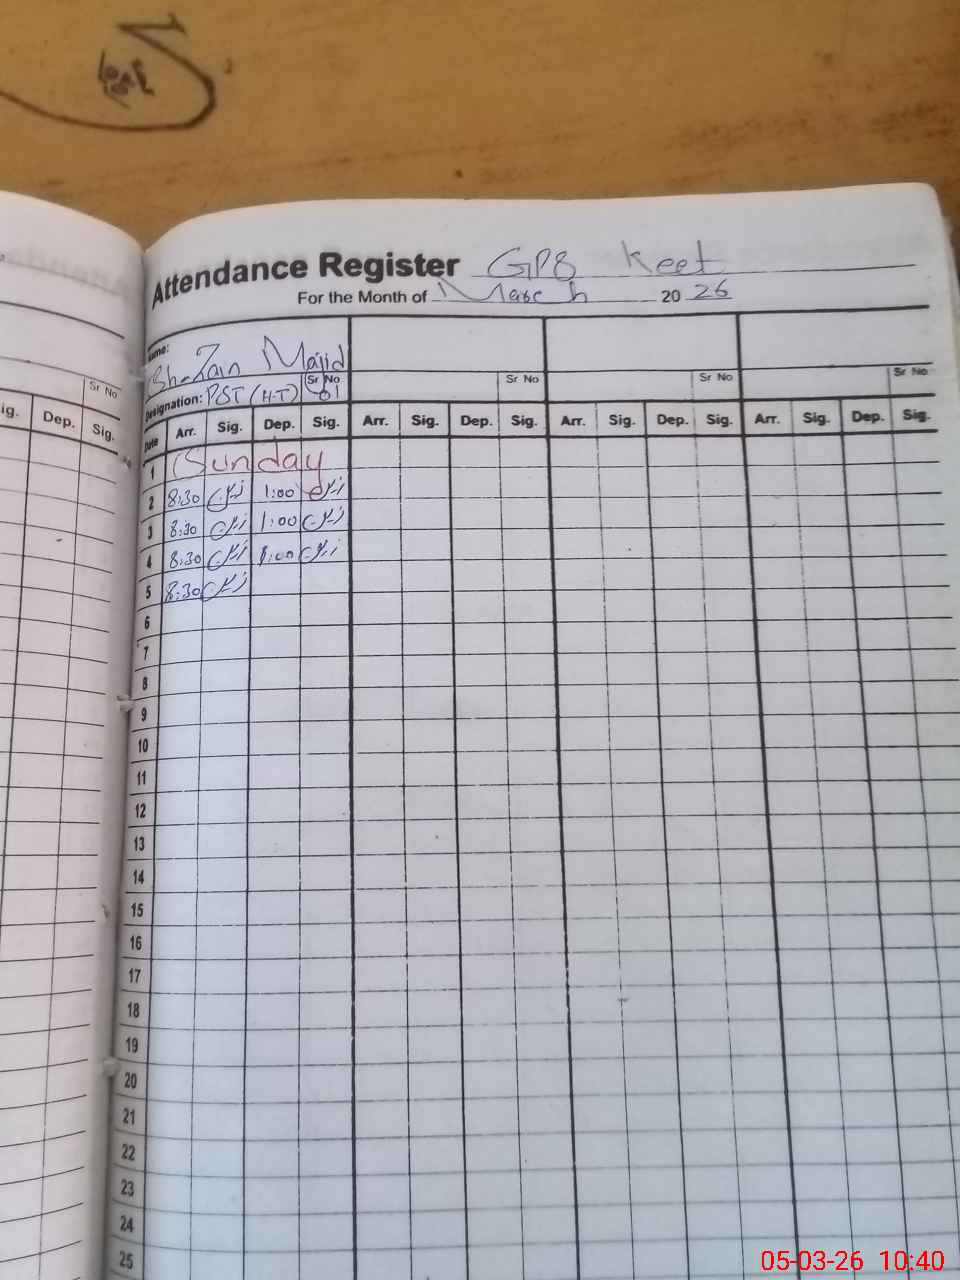 Attendance Register GPS Keet
For the Month of March 2026
Name: Sh-Zain Majid
Sr No Sr No Sr No Sr No Sr No
Designation: PST (H-T) 01
ig. Dep. Sig.
Date Arr. Sig. Dep. Sig. Arr. Sig. Dep. Sig. Arr. Sig. Dep. Sig. Arr. Sig. Dep. Sig.
1 Sunday
2 8:30 زین 1:00 زین
3 8:30 زین 1:00 زین
4 8:30 زین 1:00 زین
5 8:30 زین
6
7
8
9
10
11
12
13
14
15
16
17
18
19
20
21
22
23
24
25
05-03-26 10:40